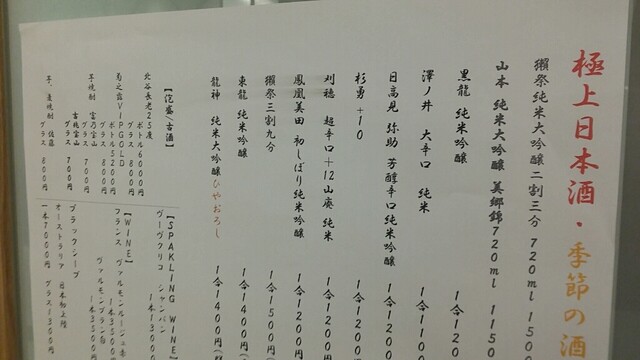 極上日本酒・季節の酒
獺祭純米大吟醸二割三分 720ml 1500
山本 純米大吟醸 美郷錦720ml 1150
黒龍 純米吟醸 1合120
澤ノ井 大辛口 純米 1合1100
日高見 弥助 芳醇辛口純米吟醸 1合1200
杉勇+10 1合1200円
刈穂 超辛口+12山廃純米 1合1200円
鳳凰美田 初しぼり純米吟醸 1合1200円
獺祭三割九分 1合1500円
東龍 純米吟醸 1合1400円
龍神 純米大吟醸ひやおろし 1合1400円
【泡盛/古酒】
北谷長老25度 ボトル6000円
グラス 800円
菊之露VIPGOLD ボトル5200円
グラス 800円
芋焼酎 宝乃宝山 グラス 700円
吉兆宝山 グラス 700円
芋、麦焼酎 佐藤 グラス 800円
【SPAKLING WINE】
ヴーヴクリコ シャンパン
1本13500円
【WINE】
フランス ヴァルモンルージュ赤
1本3500円
ヴァルモンブラン白
1本3500円
ブラックシープ
オーストラリア 日本初上陸
一本7000円 グラス1300円